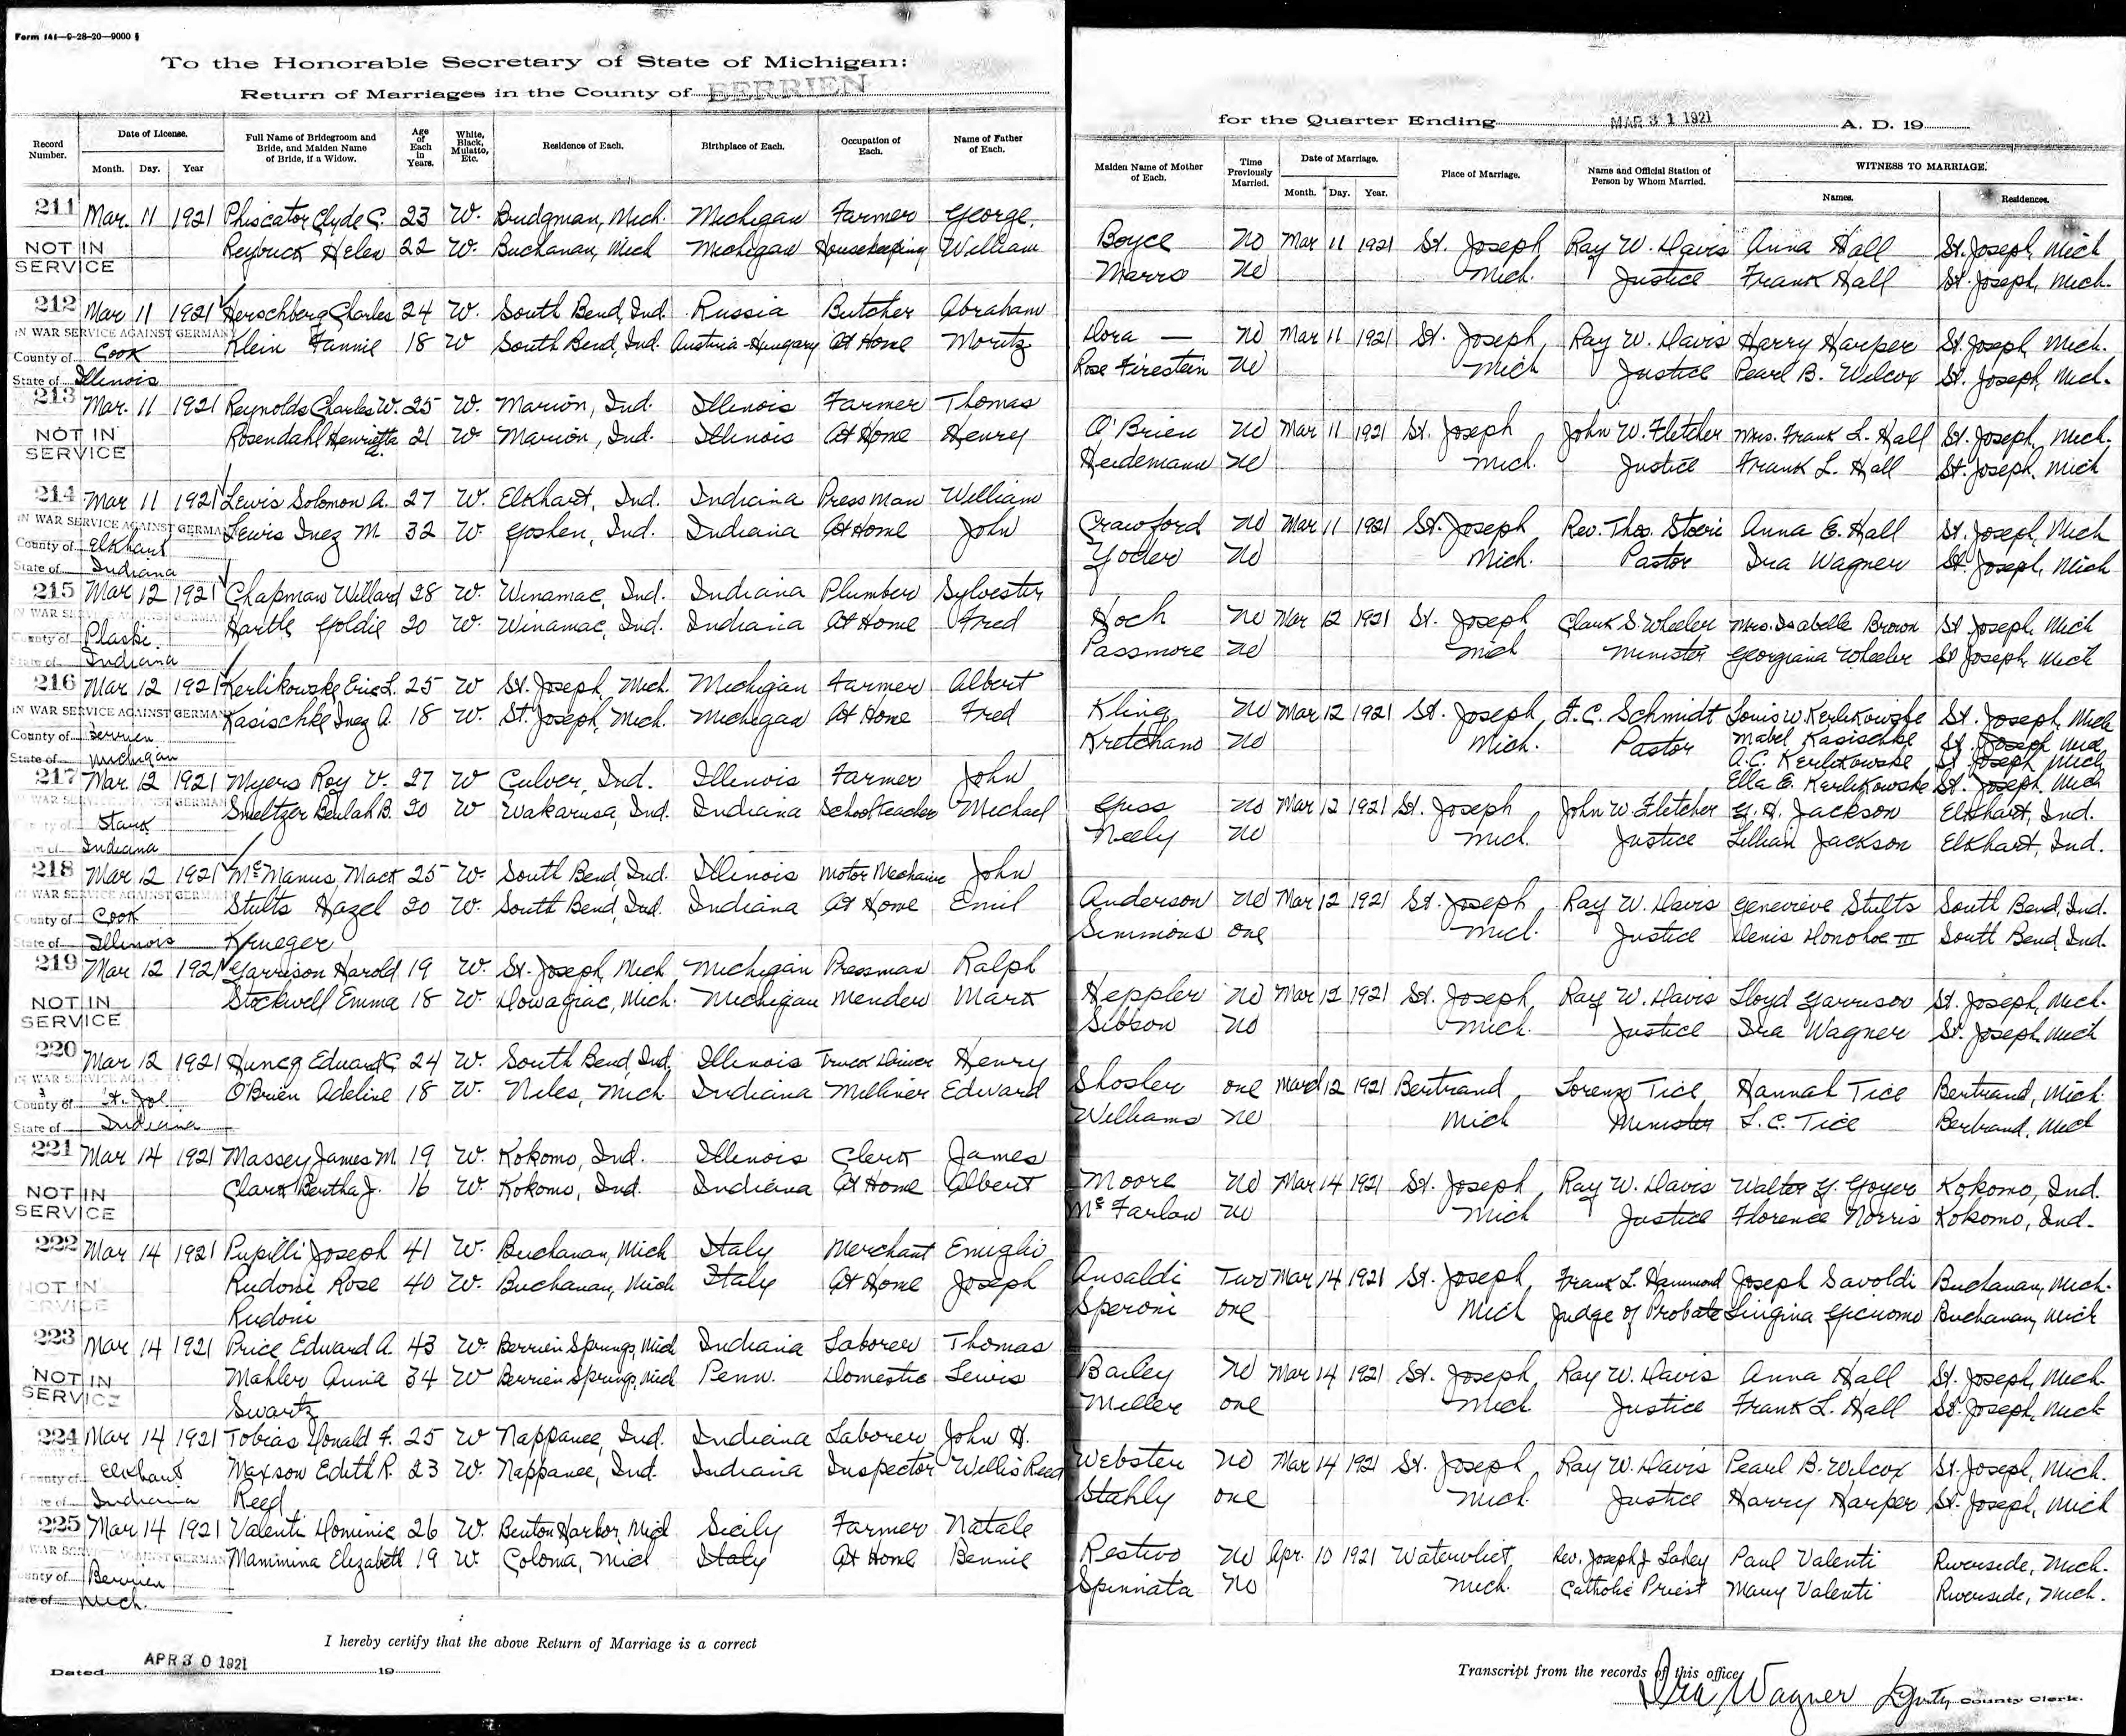 Form 141—9-28-20—9000
To the Honorable Secretary of State of Michigan:
Return of Marriages in the County of BERRIEN
Record Number. Date of License. Month. Day. Year Full Name of Bridegroom and Bride, and Maiden Name of Bride, if a Widow. Age of Each in Years. White, Black, Mulatto, Etc. Residence of Each. Birthplace of Each. Occupation of Each. Name of Father of Each.
211 Mar. 11 1921 Phiscator Clyde C. 23 W. Bridgman, Mich. Michigan Farmer George
NOT IN SERVICE Helen 22 W. Buchanan, Mich Michigan Housekeeping William
212 Mar 11 1921 Herschberg Charles 24 W. South Bend, Ind. Russia Butcher Abraham
IN WAR SERVICE AGAINST GERMAN Klein Fannie 18 W South Bend, Ind. Austria-Hungary At Home Moritz
County of Cook
State of Illinois
213 Mar. 11 1921 Reynolds Charles W. 25 W. Marion, Ind. Illinois Farmer Thomas
NOT IN SERVICE Rosendahl Henrietta 21 W Marion, Ind. Illinois At Home Henry
214 Mar 11 1921 Lewis Solomon A. 27 W. Elkhart, Ind. Indiana Pressman William
IN WAR SERVICE AGAINST GERMAN Lewis Inez M. 32 W. Goshen, Ind. Indiana At Home John
County of Elkhart
State of Indiana
215 Mar 12 1921 Chapman Willard 28 W. Winamac, Ind. Indiana Plumber Sylvester
Hartle Goldie 20 W. Winamac, Ind. Indiana At Home Fred
County of Plaski
State of Indiana
216 Mar 12 1921 Kerlikowske Eric L. 25 W St. Joseph, Mich. Michigan Farmer Albert
IN WAR SERVICE AGAINST GERMAN Kasischke Inez A. 18 W. St. Joseph, Mich. Michigan At Home Fred
County of Berrien
State of Michigan
217 Mar. 12 1921 Myers Roy V. 27 W Culver, Ind. Illinois Farmer John
Smeltzer Beulah B. 20 W Wakarusa, Ind. Indiana School teacher Michael
Stark
Indiana
218 Mar 12 1921 McManus, Mack 25 W. South Bend, Ind. Illinois Motor Mechanic John
Stults Hazel 20 W. South Bend, Ind. Indiana At Home Emil
County of Cook
State of Illinois Krueger
219 Mar 12 1921 Garrison Harold 19 W. St. Joseph, Mich Michigan Pressman Ralph
NOT IN SERVICE Stockwell Emma 18 W. Dowagiac, Mich. Michigan Mender Mark
220 Mar 12 1921 Edward C. 24 W. South Bend, Ind. Illinois Truck Driver Henry
O'Brien Adeline 18 W. Niles, Mich Indiana Milliner Edward
County of St. Joe
State of Indiana
221 Mar 14 1921 Massey James M. 19 W. Kokomo, Ind. Illinois Clerk James
NOT IN SERVICE Clark Bertha J. 16 W. Kokomo, Ind. Indiana At Home Albert
222 Mar 14 1921 Pupilli Joseph 41 W. Buchanan, Mich Italy Merchant Emiglio
NOT IN SERVICE Rudoni Rose 40 W. Buchanan, Mich Italy At Home Joseph
Rudoni
223 Mar 14 1921 Price Edward A. 43 W. Berrien Springs, Mich Indiana Laborer Thomas
NOT IN SERVICE Mahler Annie 34 W Berrien Springs, Mich Penn. Domestic Lewis
Swartz
224 Mar 14 1921 Tobias Donald F. 25 W Nappanee, Ind. Indiana Laborer John H.
County of Elkhart Maxson Edith R. 23 W. Nappanee, Ind. Indiana Inspector Willis Reed
Indiana Reed
225 Mar 14 1921 Valenti Dominic 26 W. Benton Harbor, Mich Sicily Farmer Natale
Mammina Elizabeth 19 W. Coloma, Mich Italy At Home Bennie
County of Berrien
State of Mich.
I hereby certify that the above Return of Marriage is a correct
Dated APR 30 1921 19
for the Quarter Ending MAR 31 1921 A. D. 19
Maiden Name of Mother of Each. Time Previously Married. Date of Marriage. Month. Day. Year. Place of Marriage. Name and Official Station of Person by Whom Married. WITNESS TO MARRIAGE. Names. Residences.
Boyce No Mar 11 1921 St. Joseph, Ray W. Davis Anna Hall St. Joseph, Mich
Marrs No Mich. Justice Frank Hall St. Joseph, Mich.
Dora — No Mar 11 1921 St. Joseph, Ray W. Davis Harry Harper St. Joseph, Mich.
Rose Firestein No Mich Justice Pearl B. Wilcox St. Joseph, Mich.
O'Brien No Mar 11 1921 St. Joseph John W. Fletcher Mrs. Frank L. Hall St. Joseph, Mich.
Heidemann No Mich. Justice Frank L. Hall St. Joseph, Mich
Crawford No Mar 11 1921 St. Joseph Rev. Thos. Anna E. Hall St. Joseph, Mich
Yoder No Mich. Pastor Ira Wagner St. Joseph, Mich
Hoch No Mar 12 1921 St. Joseph Clark S. Wheeler Mrs. Isabelle Brown St Joseph, Mich
Passmore No Mich Minister Georgiana Wheeler St Joseph, Mich
Kling No Mar 12 1921 St. Joseph, F. C. Schmidt Louis W. Kerlikowske St. Joseph, Mich
No Mich. Pastor Mabel Kasischke St. Joseph Mich
A.C. Kerlikowske St Joseph Mich
Ella E. Kerlikowske St. Joseph, Mich
Guss No Mar 12 1921 St. Joseph John W. Fletcher G. H. Jackson Elkhart, Ind.
Neely No Mich. Justice Lillian Jackson Elkhart, Ind.
Anderson No Mar 12 1921 St. Joseph, Ray W. Davis Genevieve Stults South Bend, Ind.
Simmons one Mich. Justice Denis Donohoe III South Bend, Ind.
Heppler No Mar 12 1921 St. Joseph, Ray W. Davis Lloyd Garrison St. Joseph, Mich.
Sibson No Mich. Justice Ira Wagner St. Joseph, Mich
Shosler one March 12 1921 Bertrand Lorenzo Tice, Hannah Tice Bertrand, Mich.
Williams No Mich Minister L. C. Tice Bertrand, Mich
Moore No Mar 14 1921 St. Joseph, Ray W. Davis Walter Y. Goyer Kokomo, Ind.
McFarlow No Mich Justice Florence Norris Kokomo, Ind.
Ansaldi Two Mar 14 1921 St. Joseph, Frank L. Hammond Joseph Savoldi Buchanan, Mich.
Speroni one Mich Judge of Probate Buchanan, Mich
Bailey No Mar 14 1921 St. Joseph, Ray W. Davis Anna Hall St. Joseph, Mich.
Miller one Mich Justice Frank L. Hall St. Joseph, Mich
Webster No Mar 14 1921 St. Joseph Ray W. Davis Pearl B. Wilcox St. Joseph, Mich.
Stahly one Mich. Justice Harry Harper St. Joseph, Mich
Restivo No Apr. 10 1921 Watervliet, Rev. Joseph J. Lahey Paul Valenti Riverside, Mich.
Spinnata No Mich. Catholic Priest Mary Valenti Riverside, Mich.
Transcript from the records of this office,
Ira Wagner Deputy County Clerk.